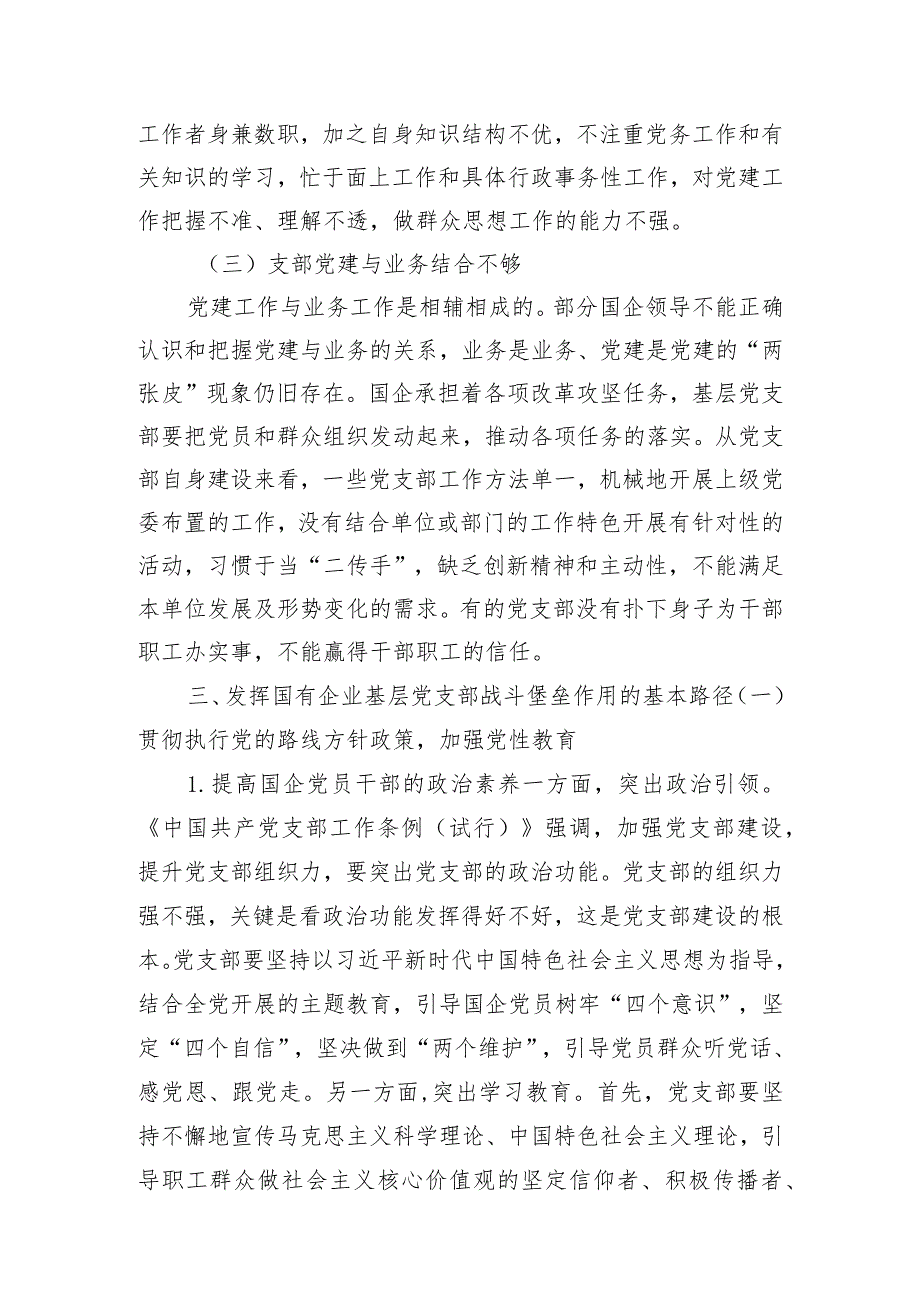 工作者身兼数职，加之自身知识结构不优，不注重党务工作和有
关知识的学习，忙于面上工作和具体行政事务性工作，对党建工
作把握不准、理解不透，做群众思想工作的能力不强。
（三）支部党建与业务结合不够
党建工作与业务工作是相辅相成的。部分国企领导不能正确
认识和把握党建与业务的关系，业务是业务、党建是党建的“两
张皮”现象仍旧存在。国企承担着各项改革攻坚任务，基层党支
部要把党员和群众组织发动起来，推动各项任务的落实。从党支
部自身建设来看，一些党支部工作方法单一，机械地开展上级党
委布置的工作，没有结合单位或部门的工作特色开展有针对性的
活动，习惯于当“二传手”，缺乏创新精神和主动性，不能满足
本单位发展及形势变化的需求。有的党支部没有扑下身子为干部
职工办实事，不能赢得干部职工的信任。
三、发挥国有企业基层党支部战斗堡垒作用的基本路径（一）
贯彻执行党的路线方针政策，加强党性教育
1.提高国企党员干部的政治素养一方面，突出政治引领。
《中国共产党支部工作条例（试行）》强调，加强党支部建设，
提升党支部组织力，要突出党支部的政治功能。党支部的组织力
强不强，关键是看政治功能发挥得好不好，这是党支部建设的根
本。党支部要坚持以习近平新时代中国特色社会主义思想为指导，
结合全党开展的主题教育，引导国企党员树牢“四个意识”，坚
定“四个自信”，坚决做到“两个维护”，引导党员群众听党话、
感党恩、跟党走。另一方面,突出学习教育。首先，党支部要坚
持不懈地宣传马克思主义科学理论、中国特色社会主义理论，引
导职工群众做社会主义核心价值观的坚定信仰者、积极传播者、